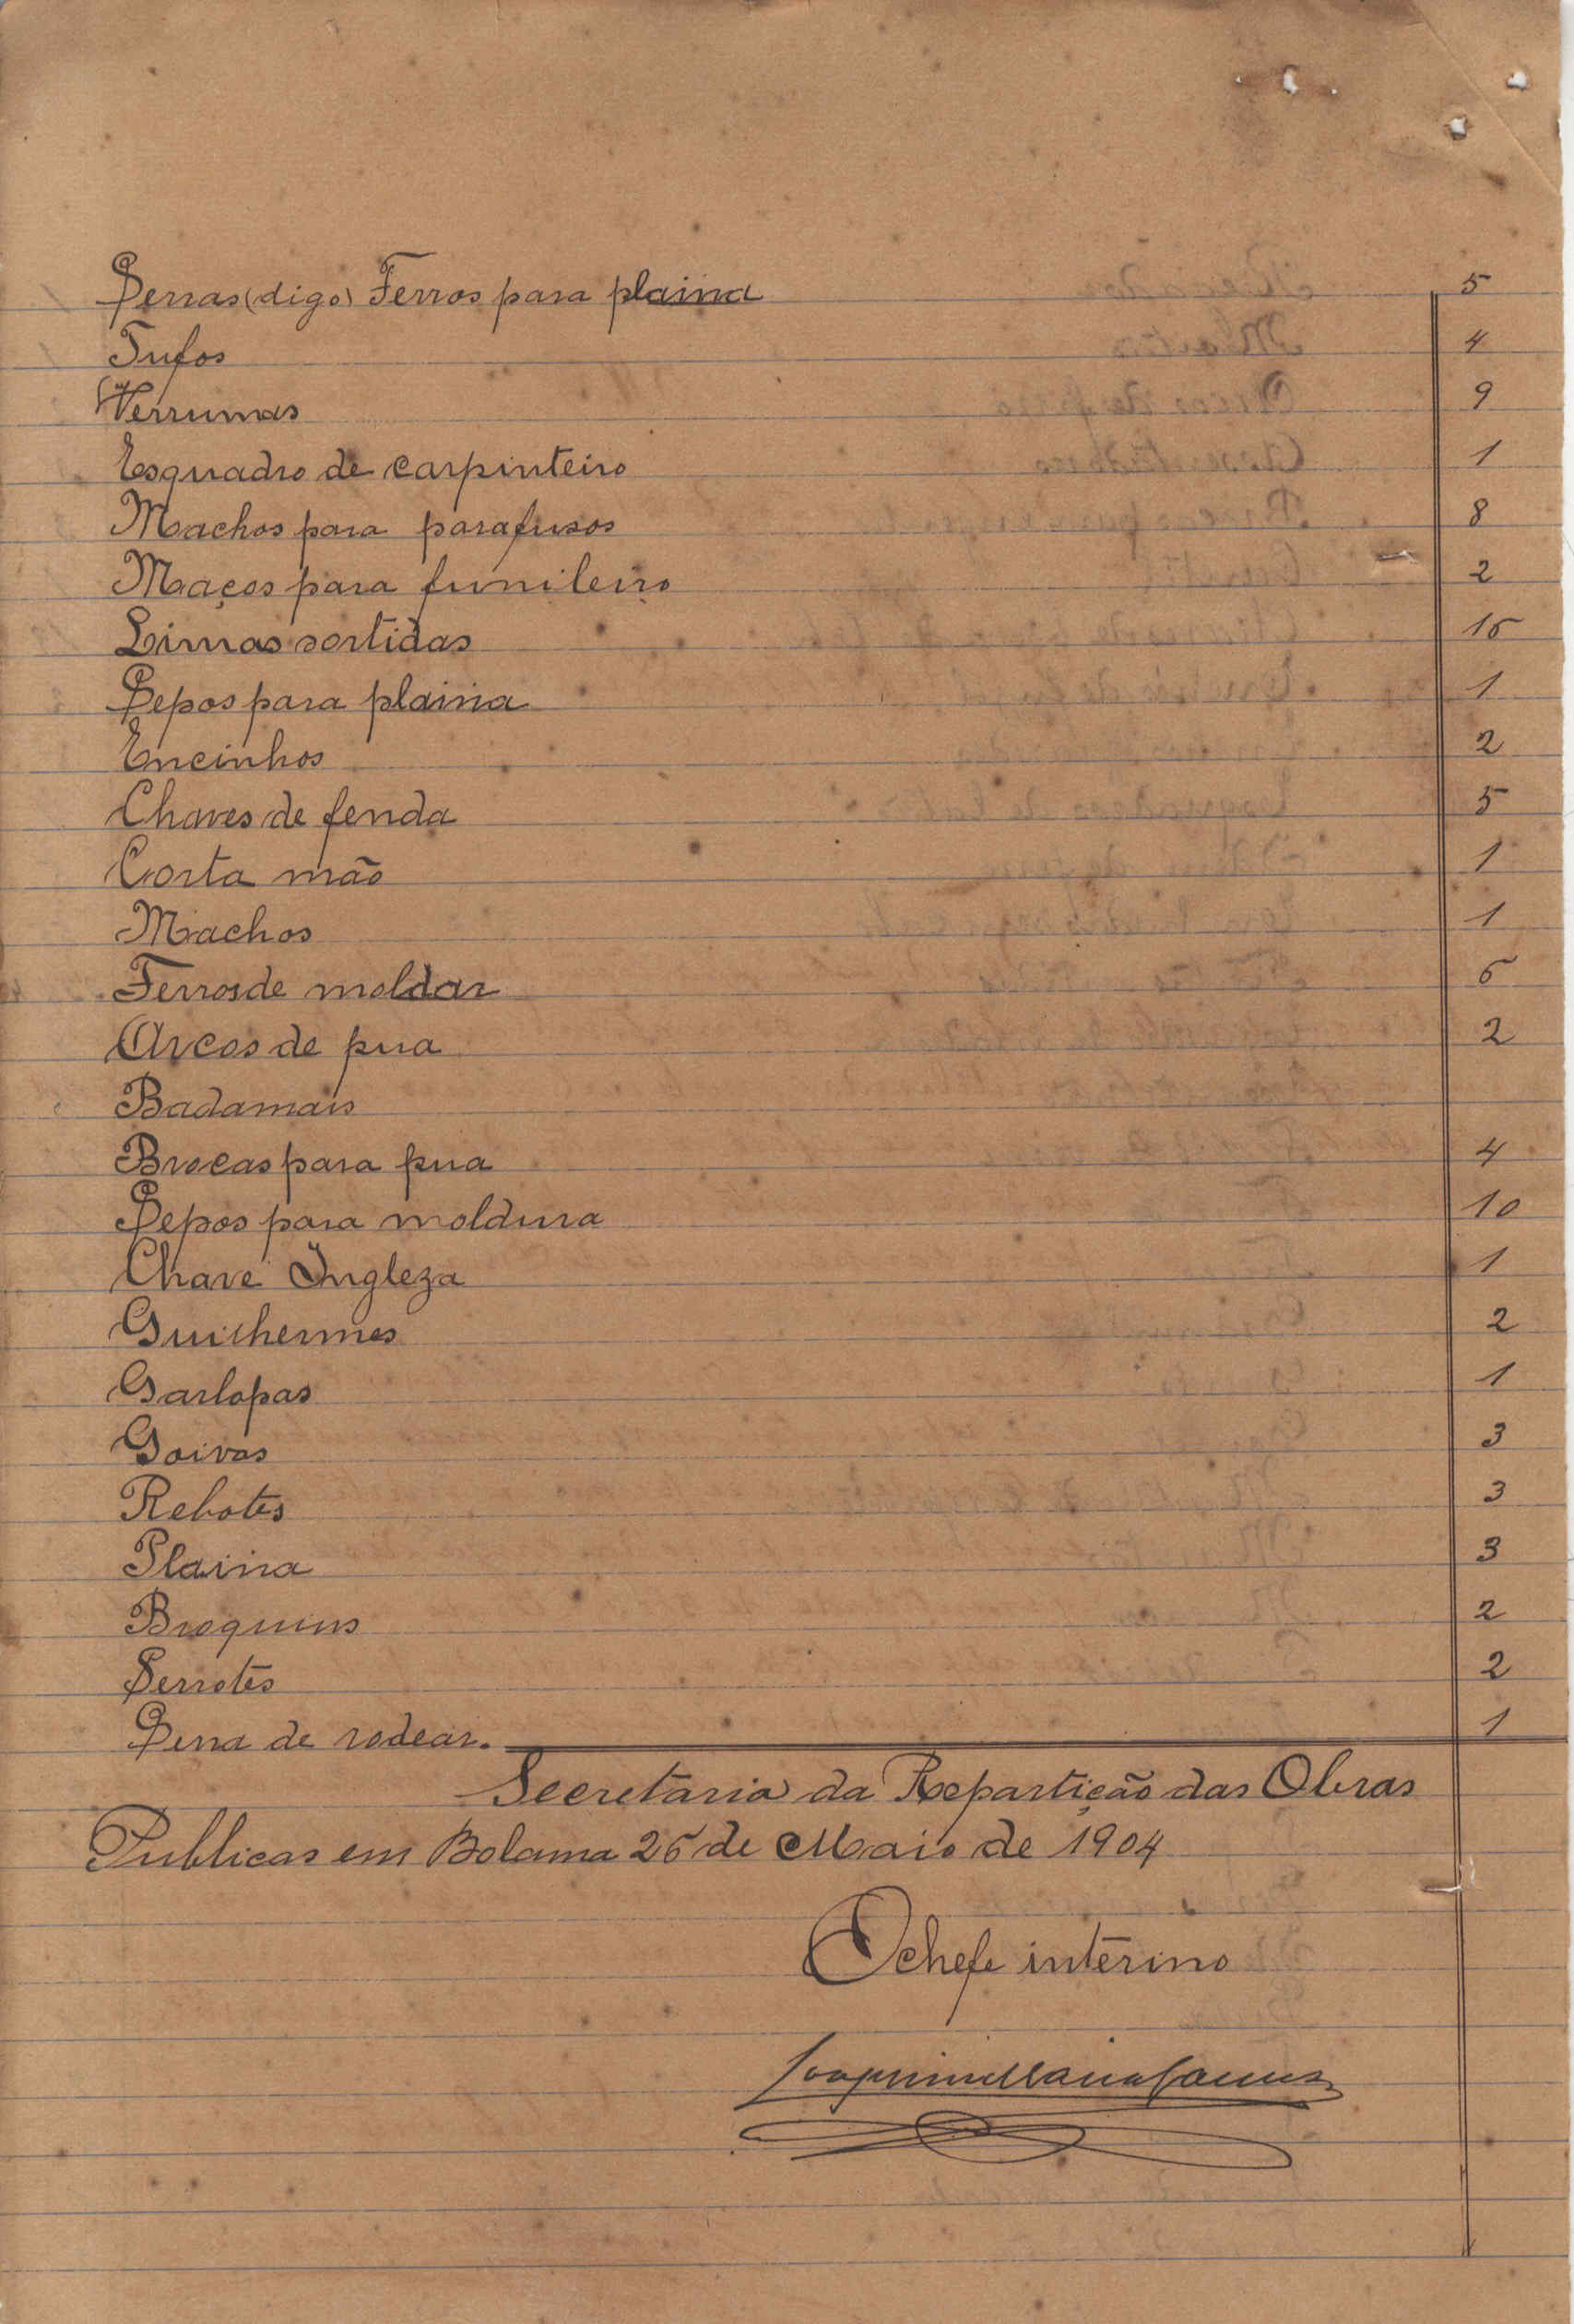 Serras (digo) Ferros para plaina 5
Tufos 4
Verrumas 9
Esquadro de carpinteiro 1
Machos para parafusos 8
Maços para funileiro 2
Limas sortidas 15
Sepos para plaina 1
Encinhos 2
Chaves de fenda 5
Corta mão 1
Machos 1
Ferros de moldar 5
Arcos de pua 2
Badamais
Brocas para pua 4
Sepos para moldura 10
Chave Ingleza 1
Guilhermes 2
Garlopas 1
Goivas 3
Rebotes 3
Plaina 3
Broquins 2
Serrotes 2
Serra de rodear. 1
Secretaria da Repartição das Obras
Publicas em Bolama 25 de Maio de 1904
O chefe interino